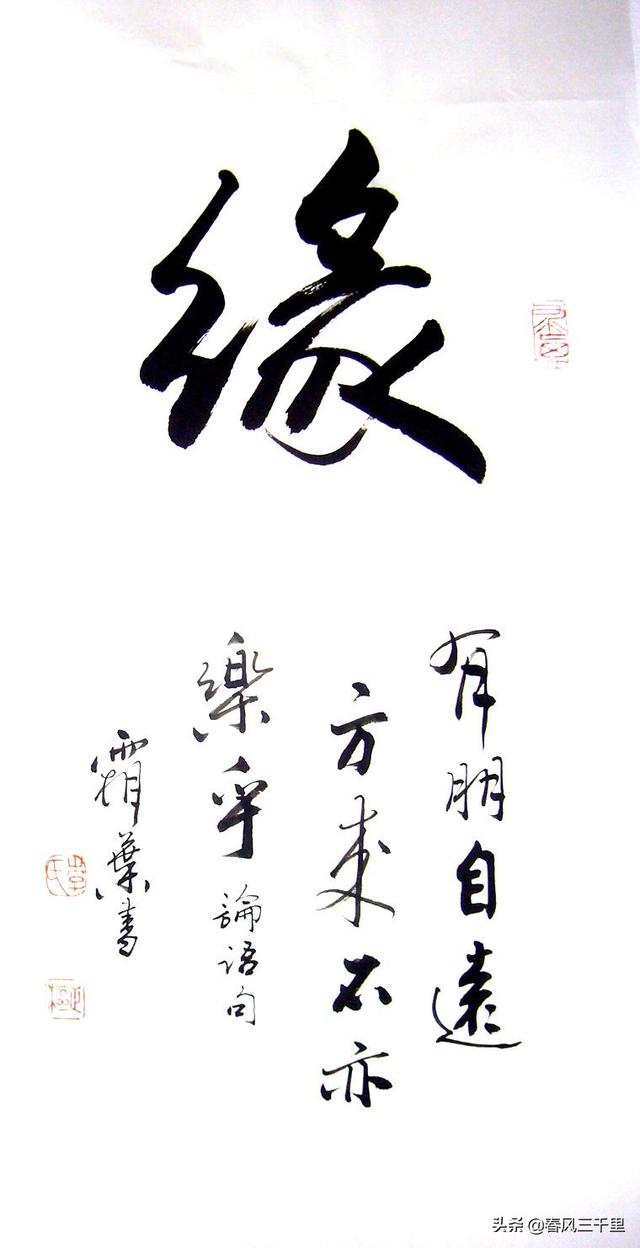 緣
有朋自遠
方来不亦
樂乎 論语句
霜葉書
头条 @春风三千里